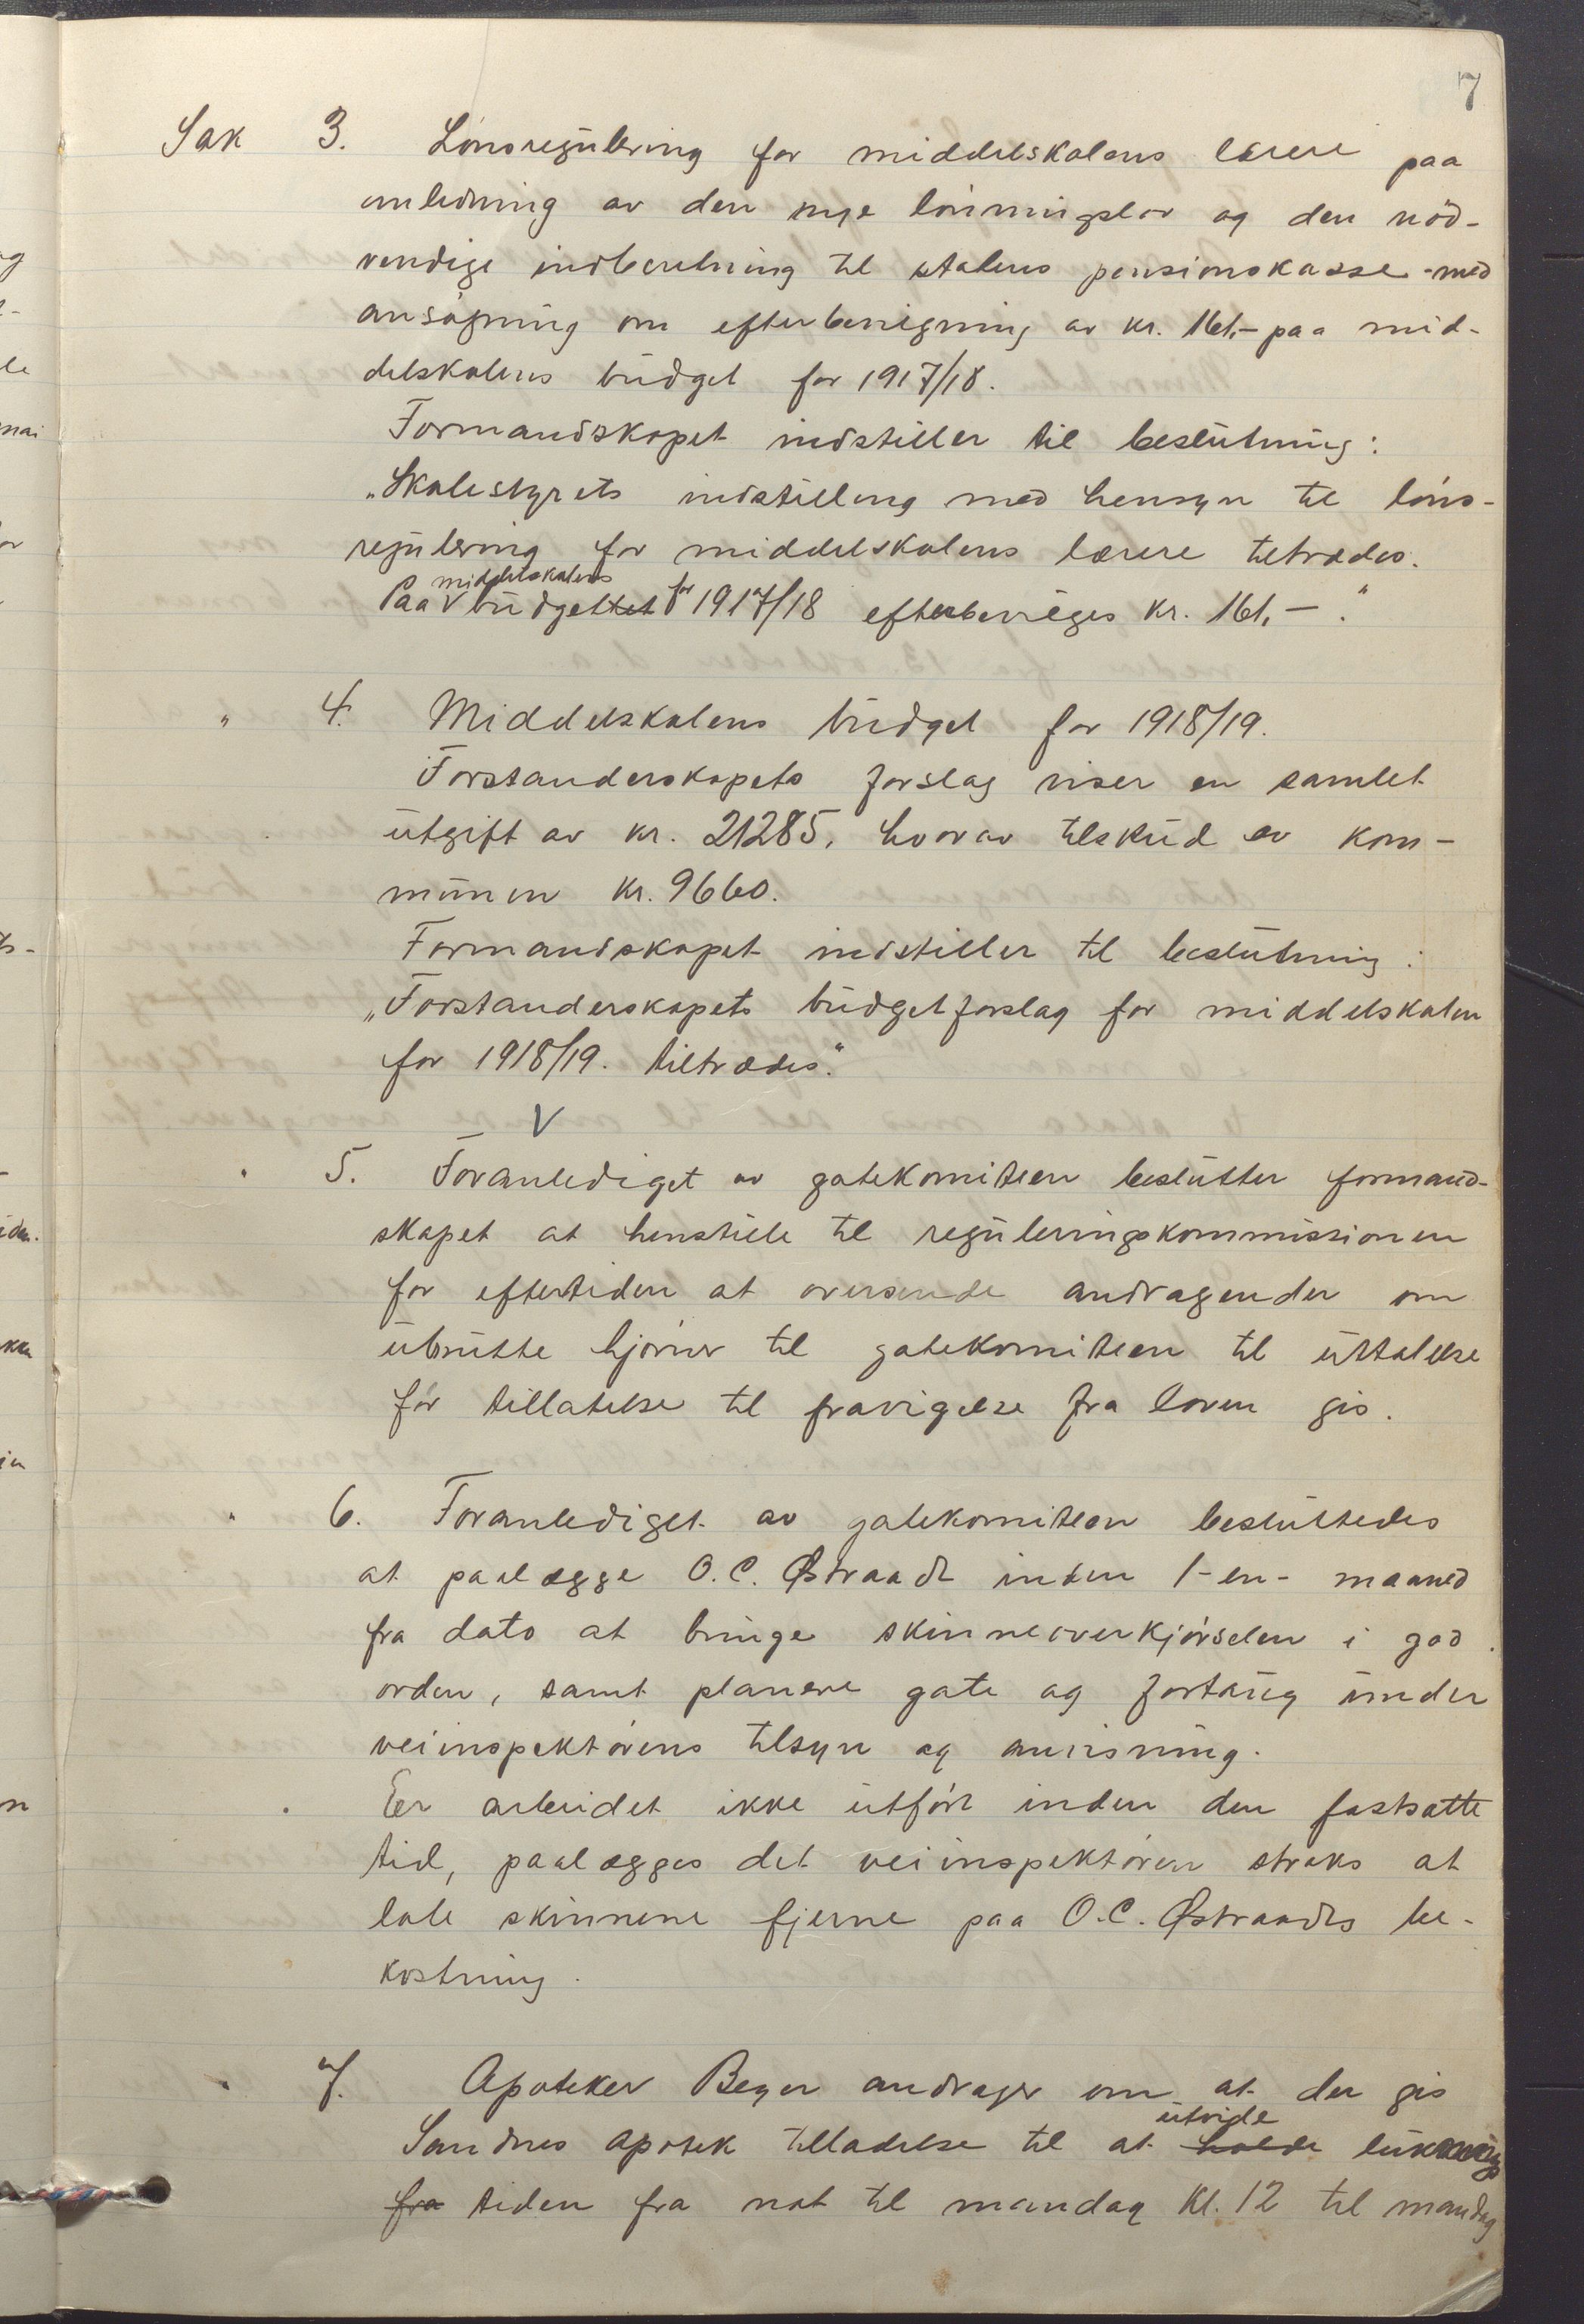 7
Sak 3. Lönsregulering for middelskolens lærere paa
anledning av den nye lönningslov og den nöd-
vendige indberetning til statens pensionskasse - med
ansögning om efterbevilgning av kr. 161,- paa mid-
delskolens budget for 1917/18.
Formandskapet indstiller til beslutning:
„Skolestyrets indstilling med hensyn til löns-
regulering for middelskolens lærere tiltrædes.
middelskolens
Paa budgettet for 1917/18 efterbevilges kr. 161,- ."
" 4. Middelskolens budget for 1918/19.
Forstanderskapets forslag viser en samlet
utgift av kr. 21285, hvorav tilskud av kom-
munen kr. 9660.
Formandskapet indstiller til beslutning:
„Forstanderskapets budgetforslag for middelskolen
for 1918/19. tiltrædes."
V
" 5. Foranlediget av gatekomiteen beslutter formand-
skapet at henstille til reguleringskommissionen
for eftertiden at oversende andragender om
ubrutte hjörner til gatekomiteen til uttalelse
för tillatelse til fravigelse fra loven gis.
" 6. Foranlediget av gatekomiteen besluttedes
at paalægge O.C. Østraadt inden 1-en- maaned
fra dato at bringe skinneoverkjörselen i god
orden, samt planere gate og fortaug under
veiinspektörens tilsyn og anvisning.
Er arbeidet ikke utfört inden den fastsatte
tid, paalægges det veiinspektören straks at
late skinnene fjerne paa O.C. Østraadts be-
kostning.
" 7. Apoteker Beyer andrager om at der gis
utvide
Sandnes apotek tilladelse til at holde luknings
fra tiden fra nat til mandag kl. 12 til mandag